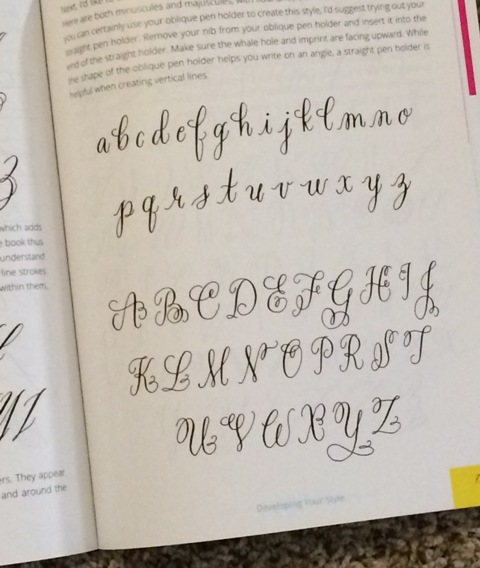 Next, I'd
Here are both minuscules and majuscules,
you can certainly use your oblique pen holder to create this style, I'd suggest trying out your
straight pen holder. Remove your nib from your oblique pen holder and insert it into the
end of the straight holder. Make sure the whale hole and imprint are facing upward. While
the shape of the oblique pen holder helps you write on an angle, a straight pen holder is
helpful when creating vertical lines.
a b c d e f g h i j k l m n o
p q r s t u v w x y z
A B C D E F G H I J
K L M N O P R S T
U V W X Y Z
Developing Your Style
which adds
book thus
understand
line strokes
within them,
They appear
and around the